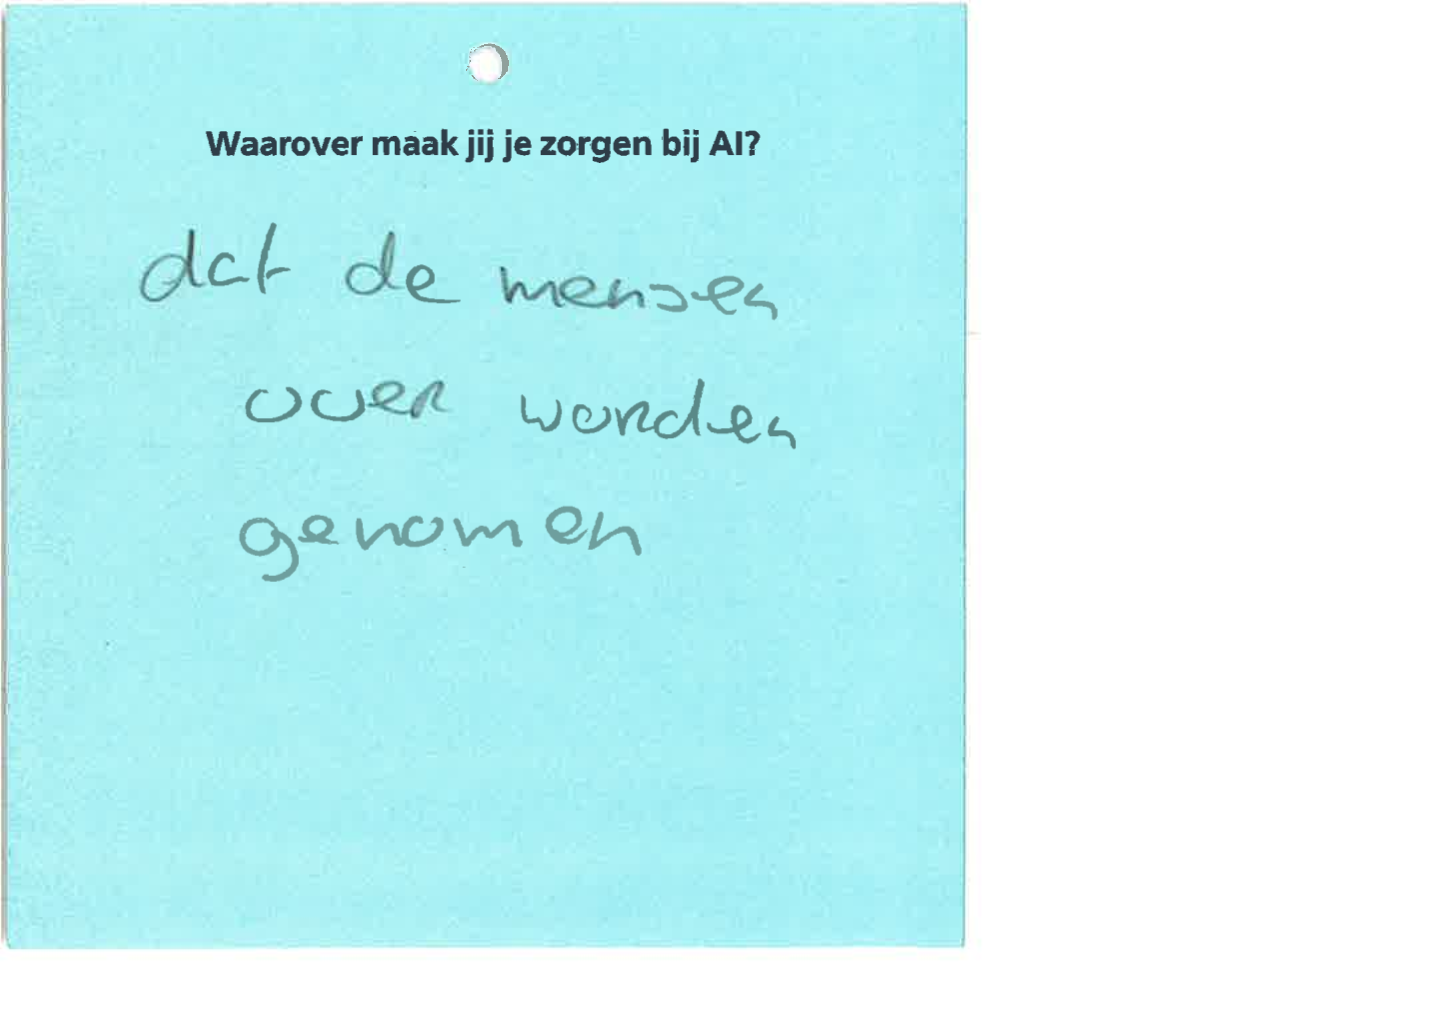 Waarover maak jij je zorgen bij AI?
dat de mensen
over worden
genomen